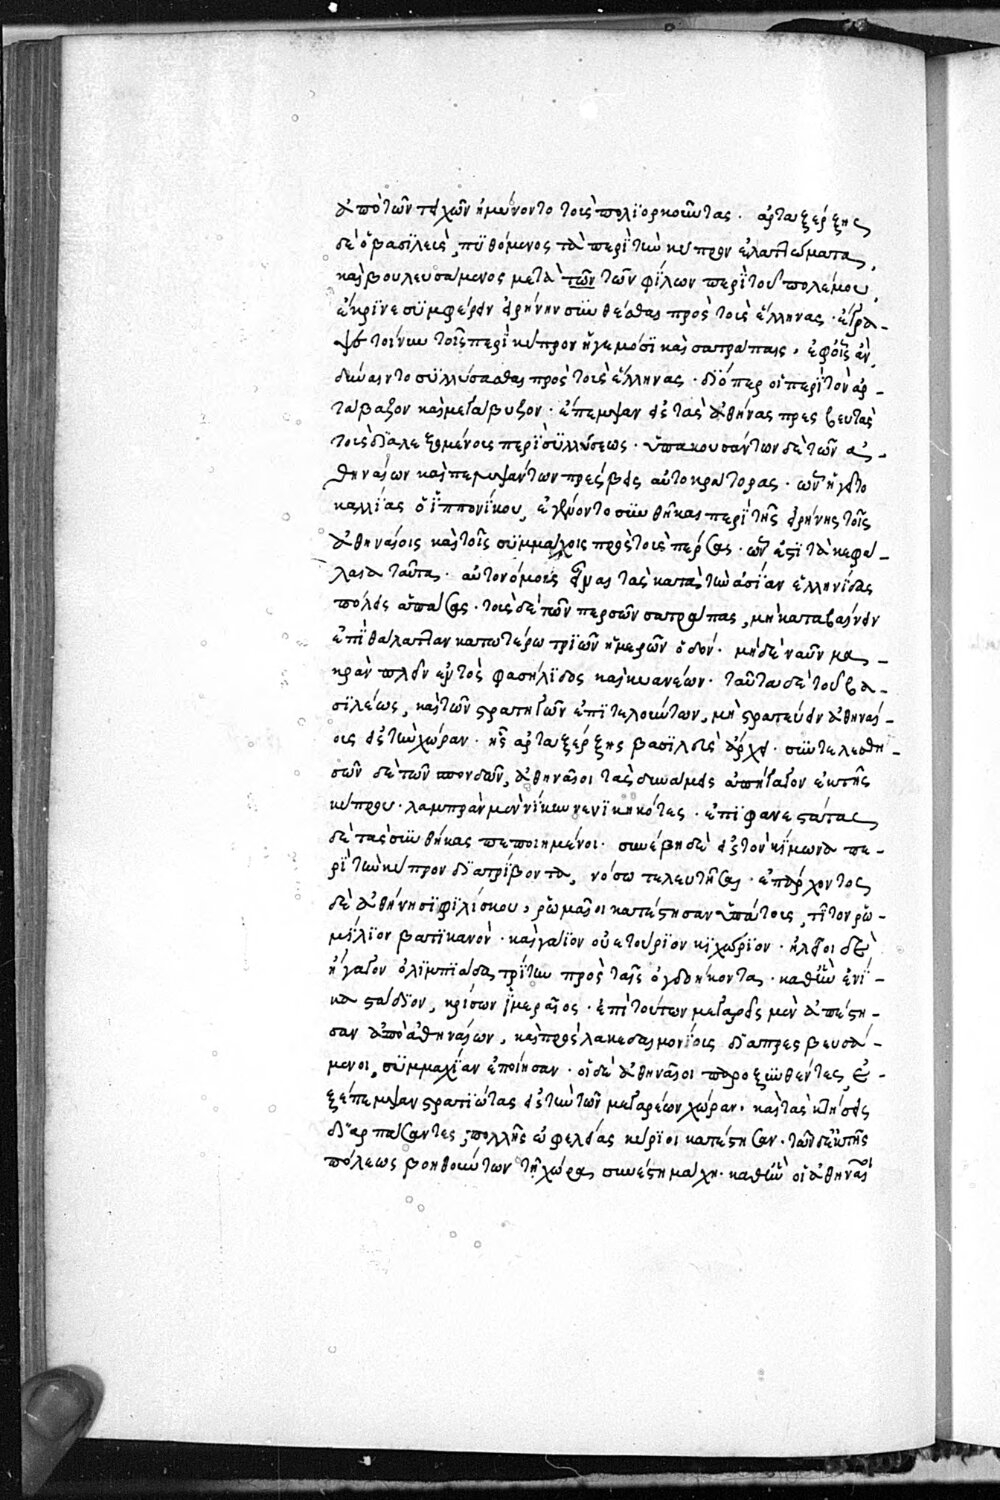 ἀπὸ τῶν τειχῶν ἠμύνοντο τοὺς πολϊορκοῦντας · ἀρταξέρξης
δὲ ὁ βασϊλεὺς, πϋθόμενος τὰ περὶ τὴν κύπρον ἐλαττώματα,
καὶ βουλευσάμενος μετὰ τῶν τῶν φίλων περὶ τοῦ πολέμου,
ἔκρϊνε συμφέρειν εἰρήνην συνθέσθαι πρὸς τοὺς ἕλληνας · ἔγρα-
ψε τοίνυν τοῖς περὶ κύπρον ἡγεμόσϊ καὶ σατράπαις, ἐφ' οἷς ἂν
δύναιντο συλλύσασθαι πρὸς τοὺς ἕλληνας · διόπερ οἱ περὶ τὸν ἀρ-
τάβαζον καὶ μεγάβυζον · ἔπεμψαν εἰς τὰς ἀθήνας πρεσβευτὰς
τοὺς διαλεξομένους περὶ συλλύσεως · ὑπακουσάντων δὲ τῶν ἀ-
θηναίων καὶ πεμψάντων πρέσβεις αὐτοκράτορας · ὧν ἡγεῖτο
καλλίας ὁ ἱππονίκου, ἐγένοντο συνθῆκαι περὶ τῆς εἰρήνης τοῖς
ἀθηναίοις καὶ τοῖς συμμάχοις πρὸς τοὺς πέρσας · ὧν ἐστὶ τὰ κεφά-
λαια ταῦτα · αὐτονόμους εἶναι τὰς κατὰ τὴν ἀσίαν ἑλληνίδας
πόλεις ἁπάσας · τοὺς δὲ τῶν περσῶν σατράπας, μὴ καταβαίνειν
ἐπὶ θάλατταν κατωτέρω τριῶν ἡμερῶν ὁδόν · μηδὲ ναῦν μα-
κρὰν πλεῖν ἐντὸς φασήλιδος καὶ κυανέων · ταῦτα δὲ τοῦ βα-
σϊλέως, καὶ τῶν στρατηγῶν ἐπιτελούντων, μὴ στρατεύειν ἀθηναί-
οις εἰς τὴν χώραν · ἧς ἀρταξέρξης βασϊλεὺς ἄρχει · συντελεσθει-
σῶν δὲ τῶν σπονδῶν, ἀθηναῖοι τὰς δυνάμεις ἀπήγαγον ἐκ τῆς
κύπρου · λαμπρὰν μὲν νίκην νενικηκότες · ἐπιφανεστάτας
δὲ τὰς συνθήκας πεποιημένοι · συνέβη δὲ εἰς τὸν κίμωνα πε-
ρὶ τὴν κύπρον διατρίβοντα, νόσω τελευτῆσαι · ἐπ' ἄρχοντος
δὲ ἀθήνησϊ φιλίσκου, ῥωμαῖοι κατέστησαν ὑπάτους, τῖτον ῥω-
μίλϊον βατικανὸν · καὶ γάϊον οὐετούριον κιχώριον · ἠλεῖοι δὲ
ἤγαγον ὀλυμπϊάδα τρίτην πρὸς ταῖς ὀγδοήκοντα · καθ' ἣν ἐνί-
κα στάδιον, κρίσων ἱμεραῖος · ἐπὶ τούτων μεγαρεῖς μὲν ἀπέστη-
σαν ἀπὸ ἀθηναίων, καὶ πρὸς λακεδαιμονίους διαπρεσβευσά-
μενοι, συμμαχίαν ἐποίησαν · οἱ δὲ ἀθηναῖοι παροξυνθέντες ἐ-
ξέπεμψαν στρατιώτας εἰς τὴν τῶν μεγαρέων χώραν · καὶ τὰς κτήσεις
διαρπάσαντες, πολλῆς ὠφελείας κύριοι κατέστησαν · τῶν δὲ ἐκ τῆς
πόλεως βοηθούντων τῇ χώρα συνέστη μάχη · καθ' ἣν οἱ ἀθηναῖ